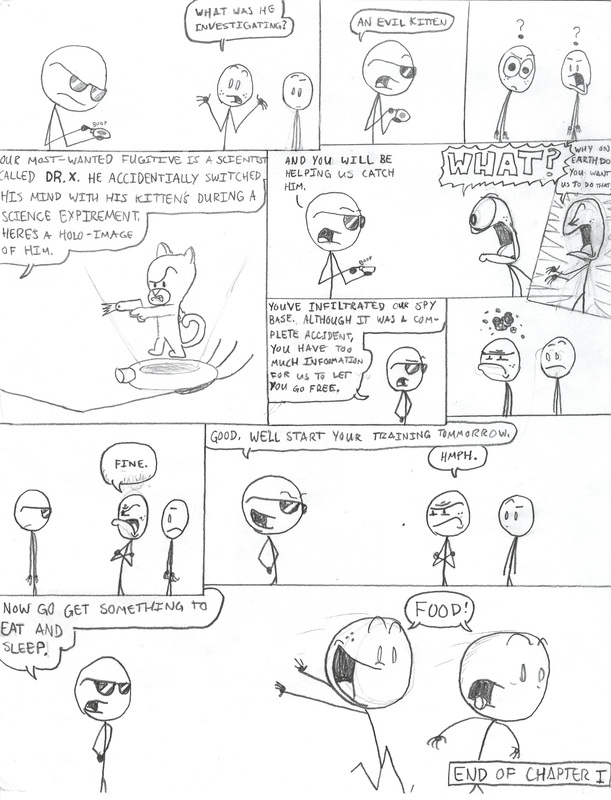 WHAT WAS HE
INVESTIGATING?
BOOP
AN EVIL KITTEN
?
?
OUR MOST-WANTED FUGITIVE IS A SCIENTIST
CALLED DR. X. HE ACCIDENTIALLY SWITCHED
HIS MIND WITH HIS KITTEN'S DURING A
SCIENCE EXPIREMENT.
HERE'S A HOLO-IMAGE
OF HIM.
AND YOU WILL BE
HELPING US CATCH
HIM.
BOOP
WHAT?
WHY ON
EARTH DO
YOU WANT
US TO DO THAT
YOU'VE INFILTRATED OUR SPY
BASE. ALTHOUGH IT WAS A COM-
PLETE ACCIDENT,
YOU HAVE TOO
MUCH INFORMATION
FOR US TO LET
YOU GO FREE.
FINE.
GOOD. WE'LL START YOUR TRAINING TOMMORROW.
HMPH.
NOW GO GET SOMETHING TO
EAT AND
SLEEP.
FOOD!
END OF CHAPTER I